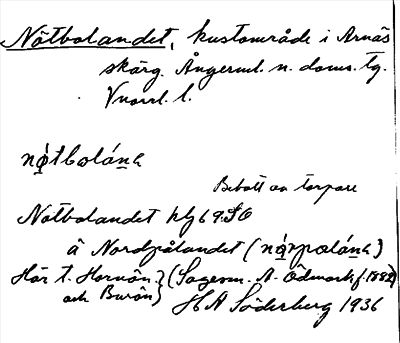 Nötbolandet, kustområde i Arnäs
skärg. Ångerml. n. doms. tg.
Vnorrl. l.
nǫ́tbolána
Bebott av torpare
Nötbolandet hlj 69:50
å Nordpålandet (
Här t. Hornön (Sagesm. A. Ödmark f. 1882)
och Burön
H A Söderberg 1936